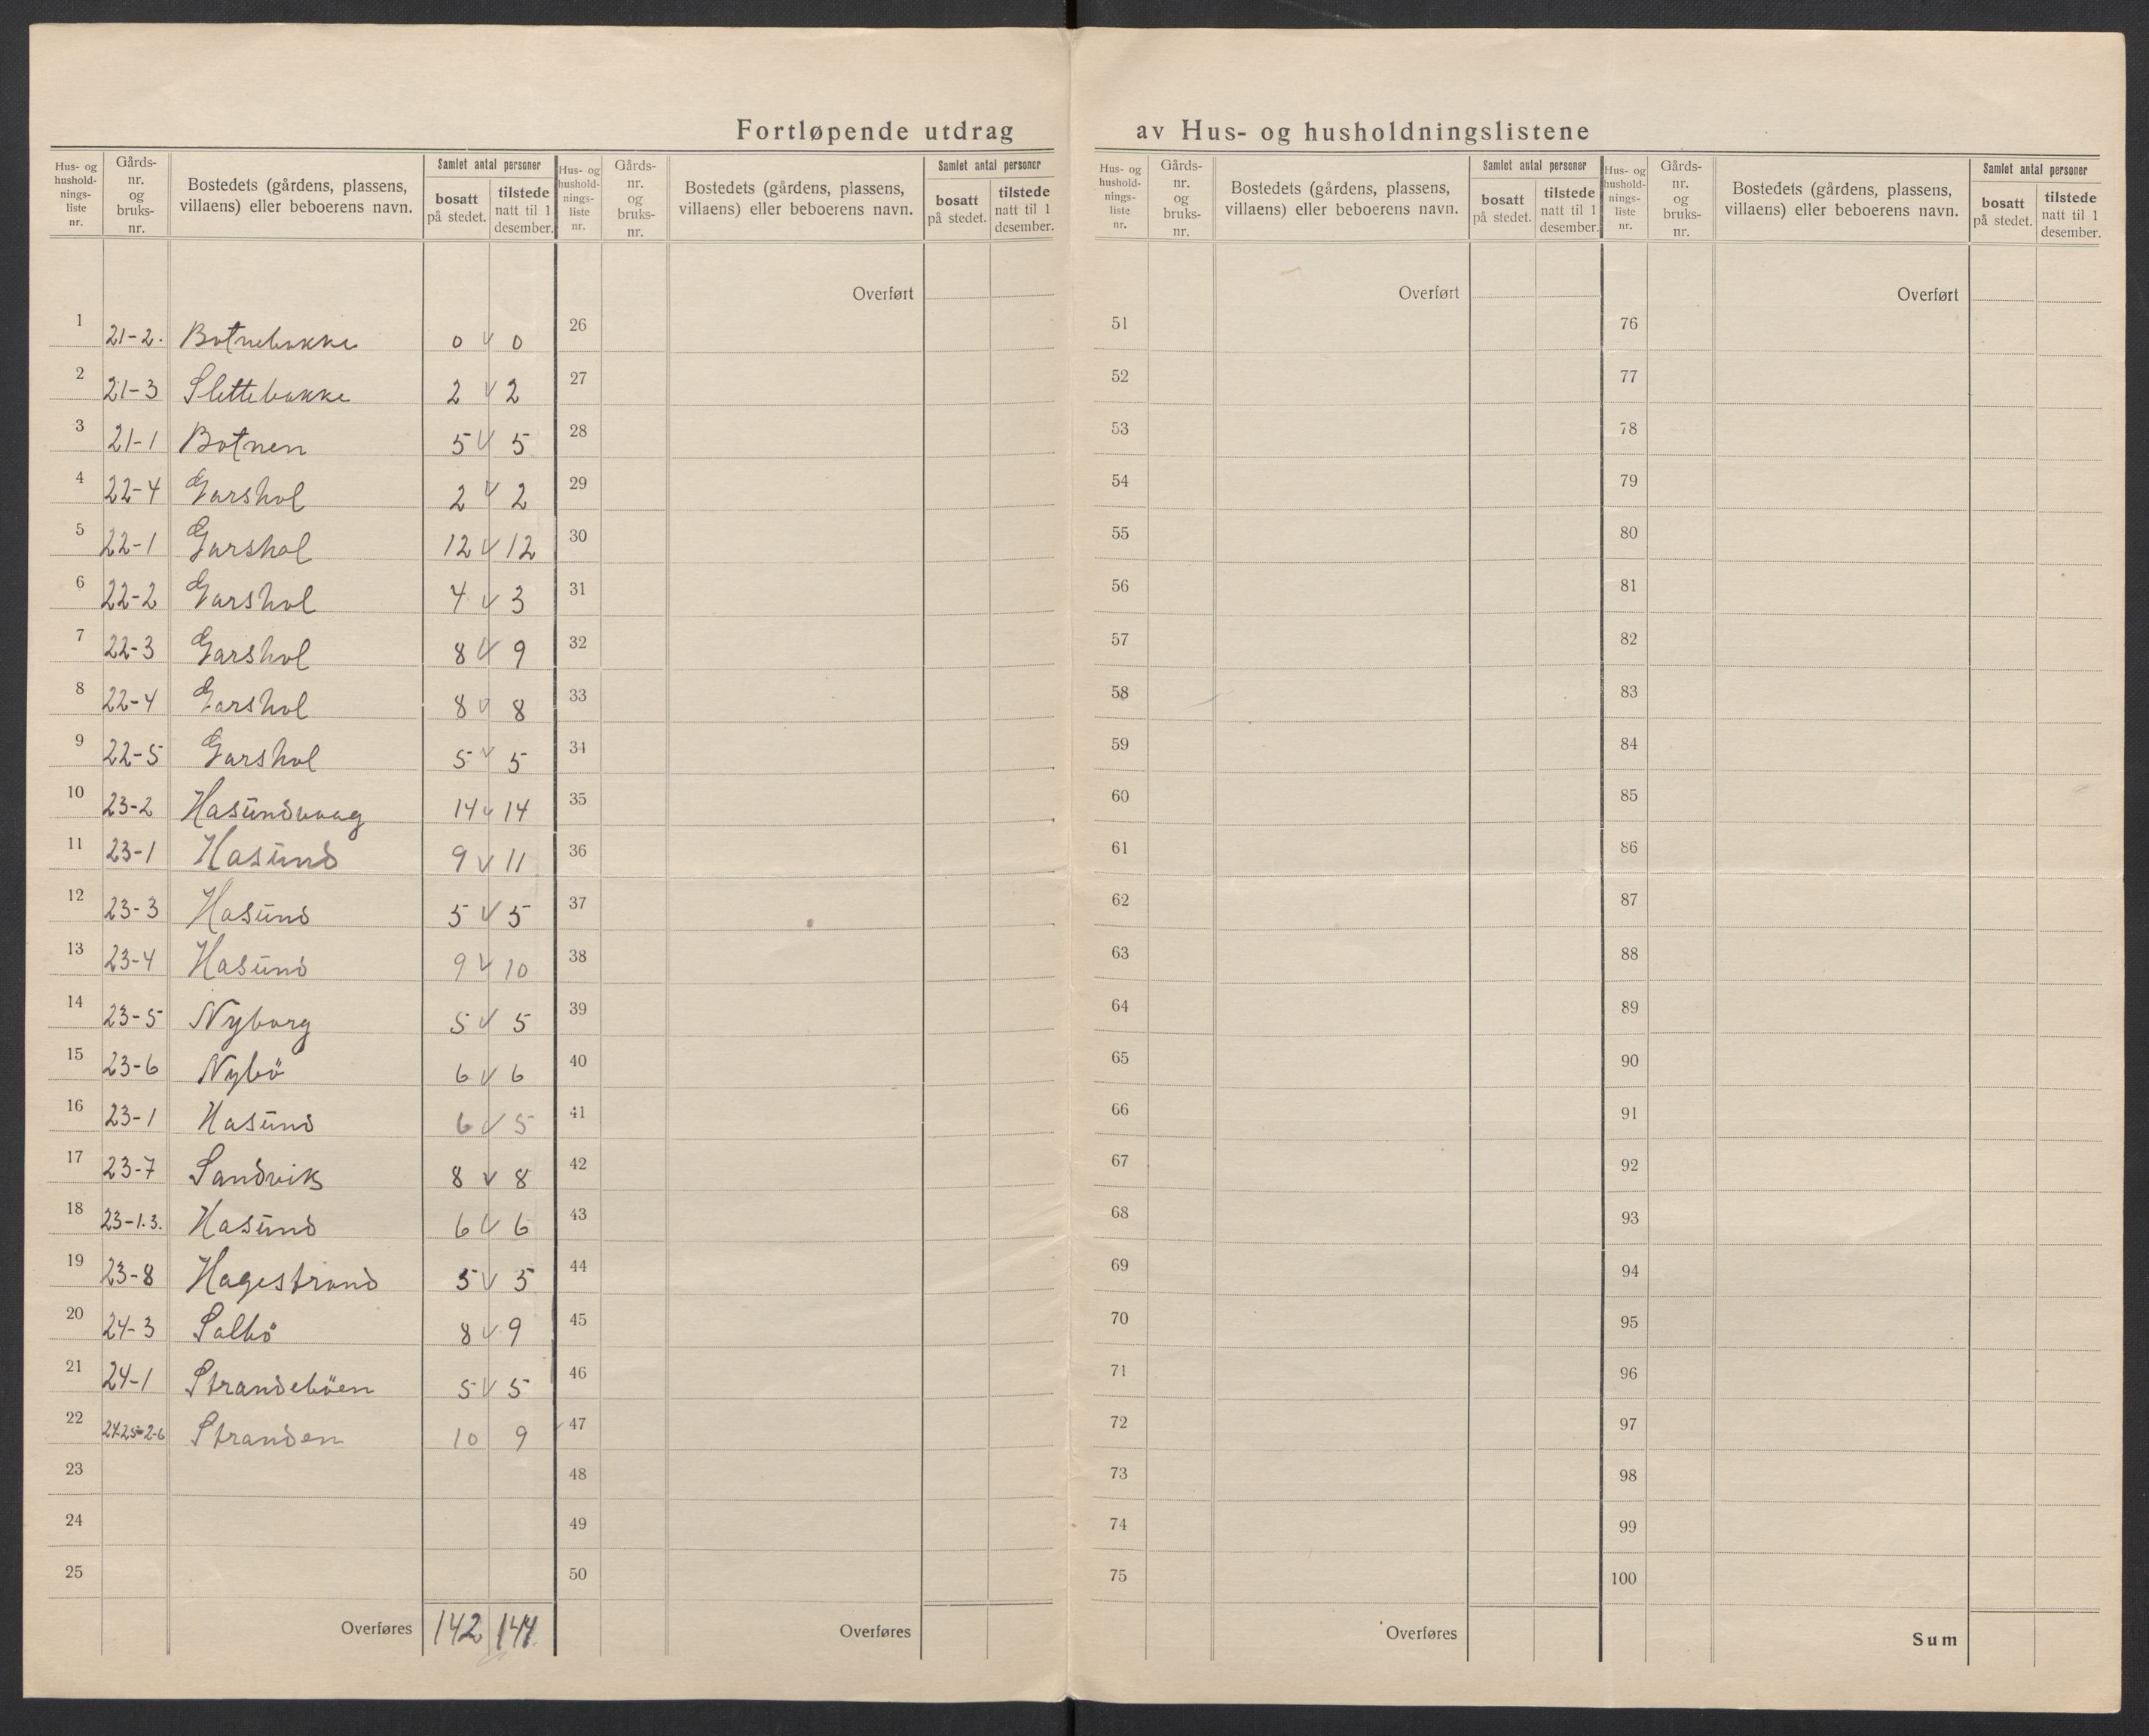 Fortløpende utdrag av Hus- og husholdningslistene
Hus- og hushold-nings-liste nr. | Gårds-nr. og bruks-nr. | Bostedets (gårdens, plassens, villaens) eller beboerens navn. | Samlet antal personer | bosatt på stedet. | tilstede natt til 1 desember.
Hus- og hushold-nings-liste nr. | Gårds-nr. og bruks-nr. | Bostedets (gårdens, plassens, villaens) eller beboerens navn. | Samlet antal personer | bosatt på stedet. | tilstede natt til 1 desember.
Hus- og hushold-nings-liste nr. | Gårds-nr. og bruks-nr. | Bostedets (gårdens, plassens, villaens) eller beboerens navn. | Samlet antal personer | bosatt på stedet. | tilstede natt til 1 desember.
Hus- og hushold-nings-liste nr. | Gårds-nr. og bruks-nr. | Bostedets (gårdens, plassens, villaens) eller beboerens navn. | Samlet antal personer | bosatt på stedet. | tilstede natt til 1 desember.
1 21-2. Botnebakke 0 v 0
2 21-3 Slettebakke 2 v 2
3 21-1 Botnen 5 v 5
4 22-4 Garshol 2 v 2
5 22-1 Garshol 12 v 12
6 22-2 Garshol 4 v 3
7 22-3 Garshol 8 v 9
8 22-4 Garshol 8 v 8
9 22-5 Garshol 5 v 5
10 23-2 Hasundvaag 14 v 14
11 23-1 Hasund 9 v 11
12 23-3 Hasund 5 v 5
13 23-4 Hasund 9 v 10
14 23-5 Nyborg 5 v 5
15 23-6 Nybö 6 v 6
16 23-1 Hasund 6 v 5
17 23-7 Sandvik 8 v 8
18 23-1.3. Hasund 6 v 6
19 23-8 Hagestrand 5 v 5
20 24-3 Salbö 8 v 9
21 24-1 Strandeböen 5 v 5
22 24-25-2-6 Stranden 10 9
23
24
25
Overføres 142 144.
Overført
26
27
28
29
30
31
32
33
34
35
36
37
38
39
40
41
42
43
44
45
46
47
48
49
50
Overføres
Overført
51
52
53
54
55
56
57
58
59
60
61
62
63
64
65
66
67
68
69
70
71
72
73
74
75
Overføres
Overført
76
77
78
79
80
81
82
83
84
85
86
87
88
89
90
91
92
93
94
95
96
97
98
99
100
Sum